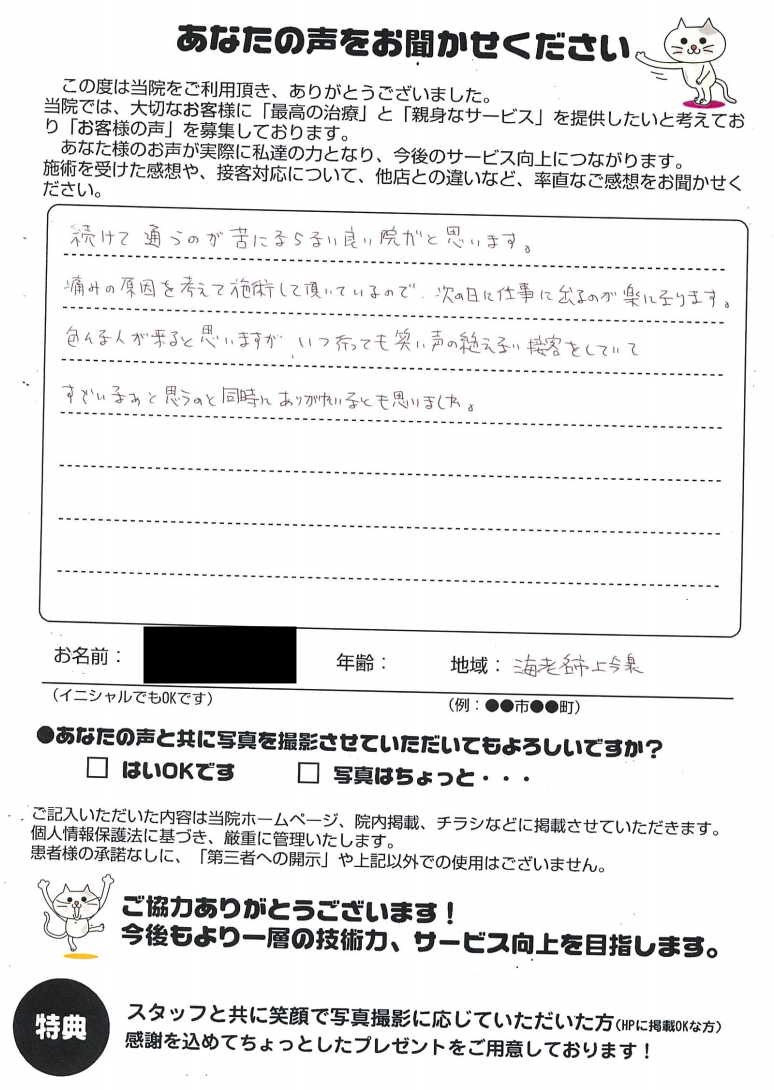 あなたの声をお聞かせください
この度は当院をご利用頂き、ありがとうございました。
当院では、大切なお客様に「最高の治療」と「親身なサービス」を提供したいと考えてお
り「お客様の声」を募集しております。
あなた様のお声が実際に私達の力となり、今後のサービス向上につながります。
施術を受けた感想や、接客対応について、他店との違いなど、率直なご感想をお聞かせく
ださい。
続けて通うのが苦にならない良い院だと思います。
痛みの原因を考えて施術して頂いているので、次の日に仕事に出るのが楽になります。
色んな人が来ると思いますが、いつ行っても笑い声の絶えない接客をしていて
すごいなぁと思うのと同時にありがたいなとも思いました。
お名前：
年齢：
地域：海老名市上今泉
（イニシャルでもOKです）
（例：●●市●●町）
●あなたの声と共に写真を撮影させていただいてもよろしいですか？
□ はいOKです □ 写真はちょっと・・・
ご記入いただいた内容は当院ホームページ、院内掲載、チラシなどに掲載させていただきます。
個人情報保護法に基づき、厳重に管理いたします。
患者様の承諾なしに、「第三者への開示」や上記以外での使用はございません。
ご協力ありがとうございます！
今後もより一層の技術力、サービス向上を目指します。
特典
スタッフと共に笑顔で写真撮影に応じていただいた方（HPに掲載OKな方）
感謝を込めてちょっとしたプレゼントをご用意しております！